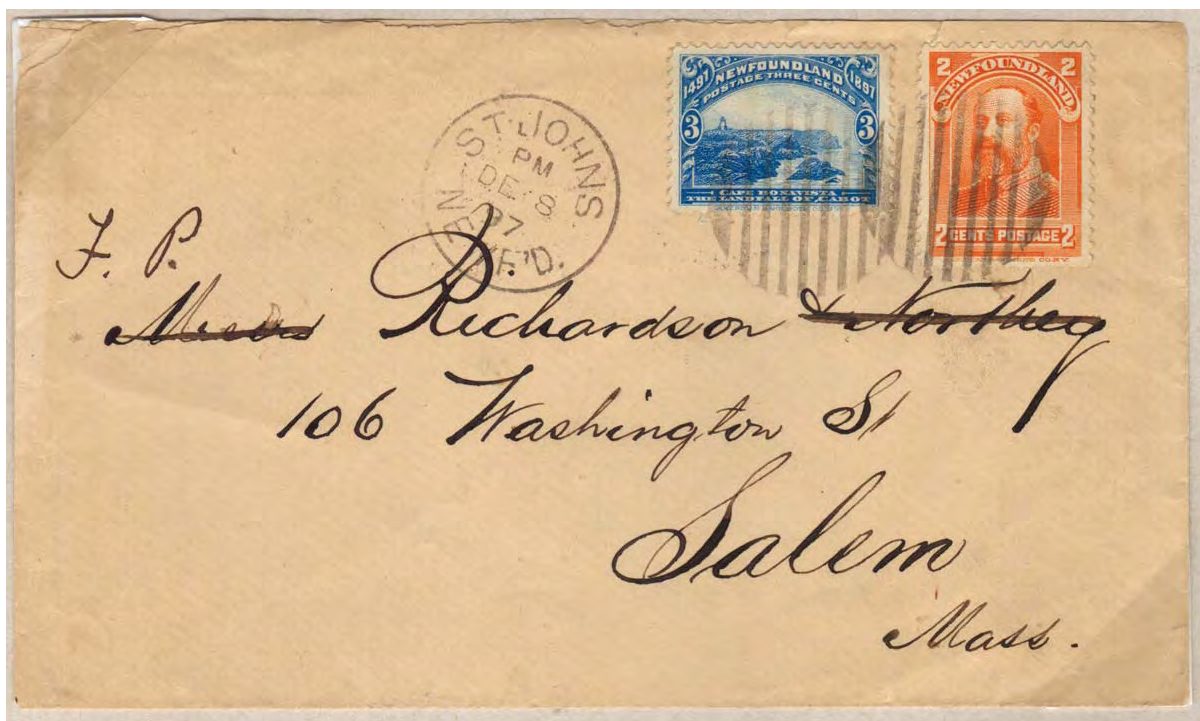 1497 NEWFOUNDLAND 1897
POSTAGE THREE CENTS
3 3
CAPE BONAVISTA
THE LANDFALL OF CABOT
2 2
NEWFOUNDLAND
2 CENTS POSTAGE 2
ST. JOHNS
PM
DE 8
97
NEWF'D.
F. P.
Messrs Richardson & Northey
106 Washington St
Salem
Mass.